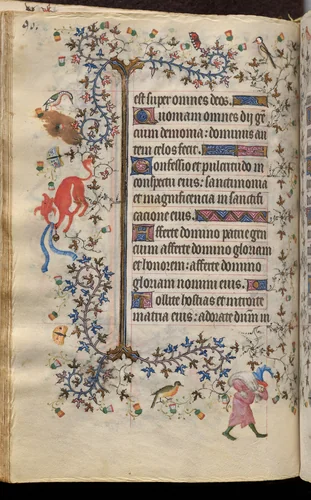 est super omnes deos.
Quoniam omnes dij gen
cium demonia: dominus au
tem celos fecit.
Confessio et pulcritudo in
conspectu eius: sanctimonia
et magnificentia in sanctifi
cacione eius.
Afferte domino patrie gen
cium afferte domino gloriam
et honorem: afferte domino
gloriam nomini eius.
Tollite hostias et introite
in atria eius: adorate dnm in